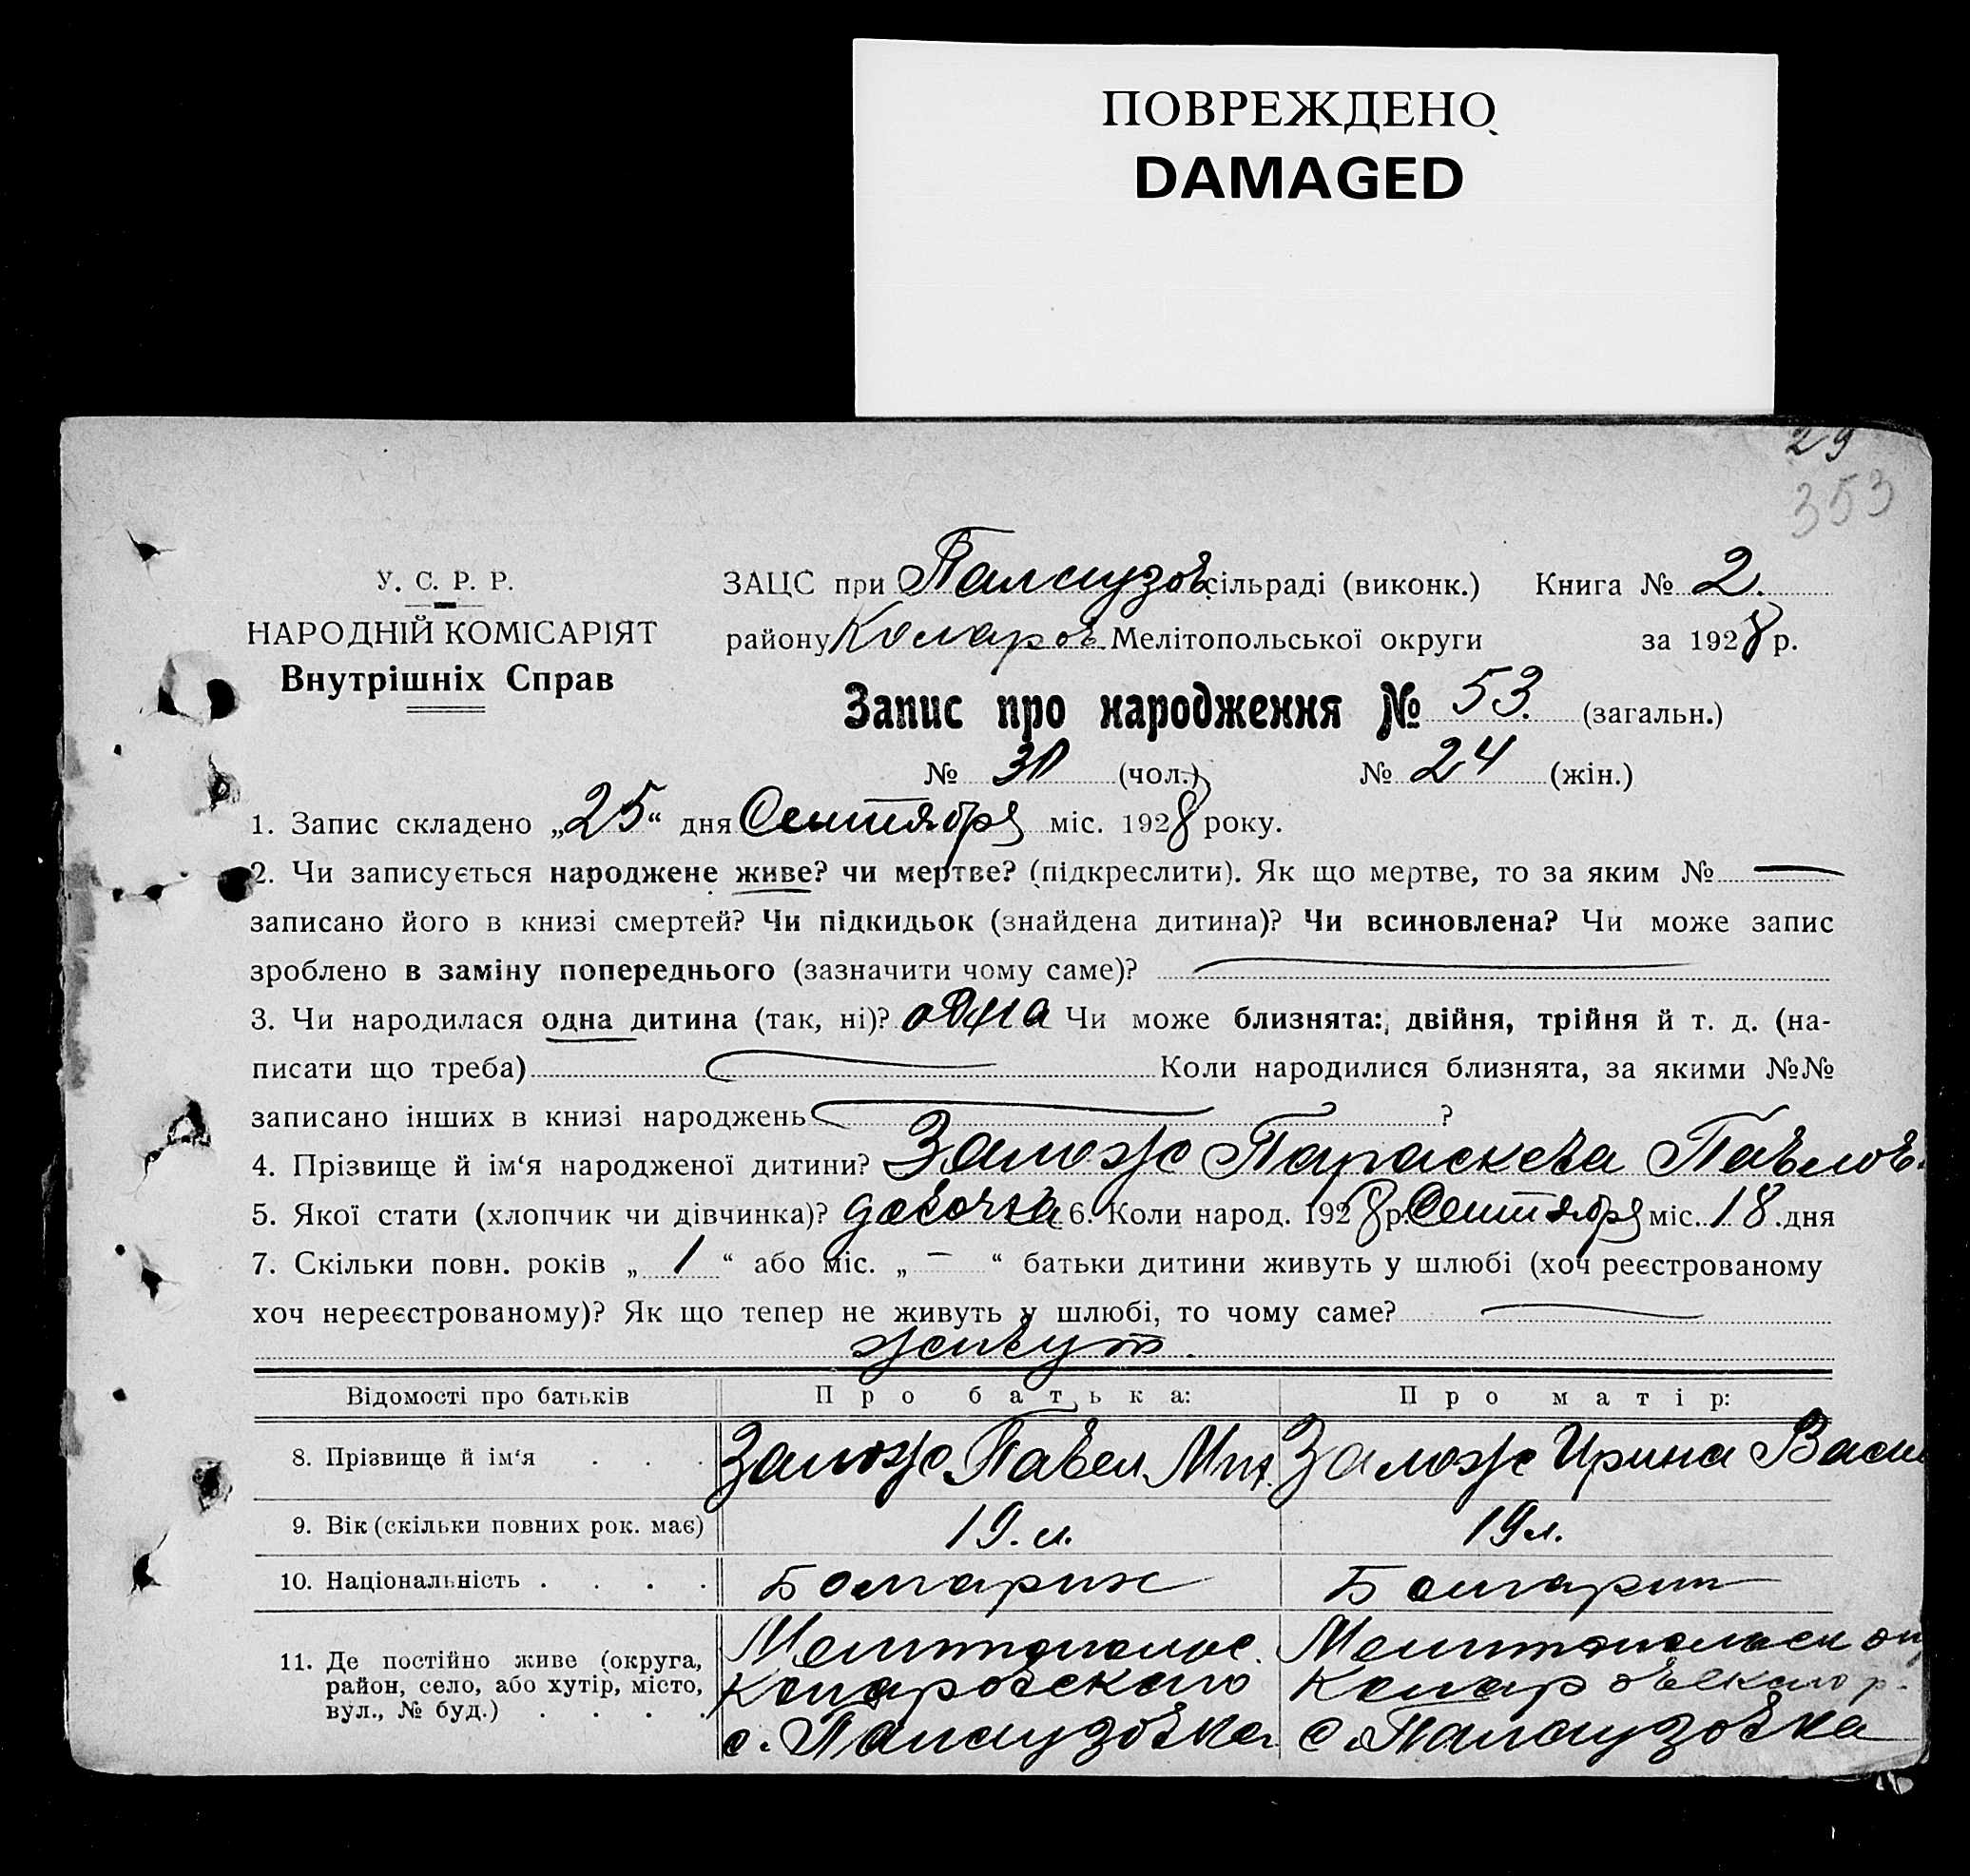 ПОВРЕЖДЕНО
DAMAGED
29
353
У. С. Р. Р.
НАРОДНІЙ КОМІСАРІЯТ
Внутрішніх Справ
ЗАЦС при Палаузов сільраді (виконк.) Книга № 2.
району Комаров. Мелітопольської округи за 1928 р.
Запис про народження № 53. (загальн.)
№ (чол.) № 24 (жін.)
1. Запис складено „25“ дня Сентября міс. 1928 року.
2. Чи записується народжене живе? чи мертве? (підкреслити). Як що мертве, то за яким № —
записано його в книзі смертей? Чи підкидьок (знайдена дитина)? Чи всиновлена? Чи може запис
зроблено в заміну попереднього (зазначити чому саме)?
3. Чи народилася одна дитина (так, ні)? одна Чи може близнята: двійня, трійня й т. д. (на-
писати що треба) Коли народилися близнята, за якими №№
записано інших в книзі народжень ?
4. Прізвище й ім‘я народженої дитини? Залож Параскева Павлов.
5. Якої стати (хлопчик чи дівчинка)? девочка 6. Коли народ. 1928 р. Сентября міс. 18 дня
7. Скільки повн. років „ 1 “ або міс. „ — “ батьки дитини живуть у шлюбі (хоч реєстрованому
хоч нереєстрованому)? Як що тепер не живуть у шлюбі, то чому саме?
живут.
Відомості про батьків Про батька: Про матір:
8. Прізвище й ім‘я . . . Залож Павел Мит. Залож Ирина Васи
9. Вік (скільки повних рок. має) 19. л. 19 л.
10. Національність . . . . Болгарин Болгарин
11. Де постійно живе (округа, Мелитополс. Мелитопольск ок
район, село, або хутір, місто, Комаровского Комаровского р.
вул., № буд.) . . . . с. Палаузовка с. Палаузовка